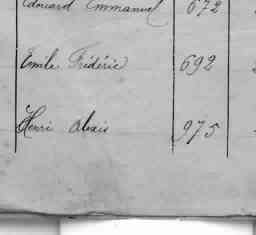 Edouard Emmanuel 672
Emile Frédéric 692
Henri Alexis 975